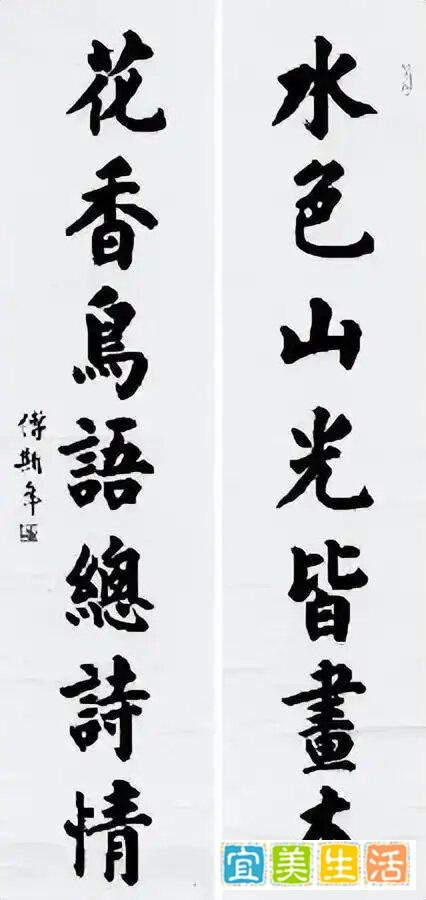 水色山光皆畫本
花香鳥語總詩情
傅斯年
宜美生活